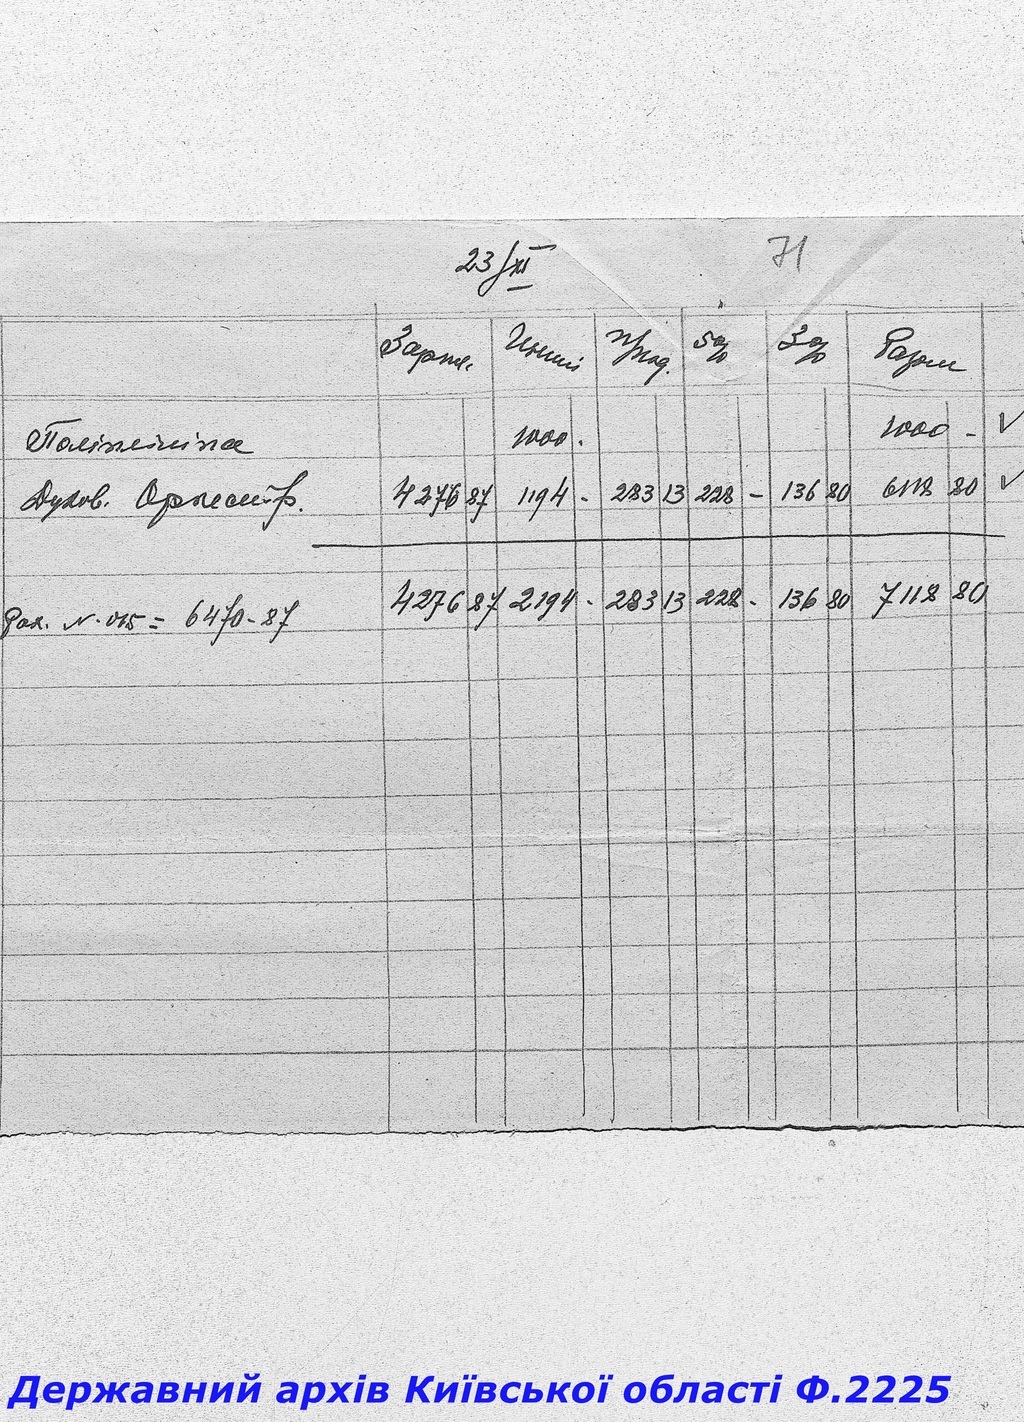 23/XI
71
Зарпл. Инші 5% 3% Разом
Поліклініка 1000. 1000 - ✓
Духов. Оркестр. 4276 87 1194 - 283 13 228 - 136 80 6118 80 ✓
4276 87 2194 - 283 13 228 - 136 80 7118 80
Рах. № = 6470-87
Державний архів Київської області Ф.2225